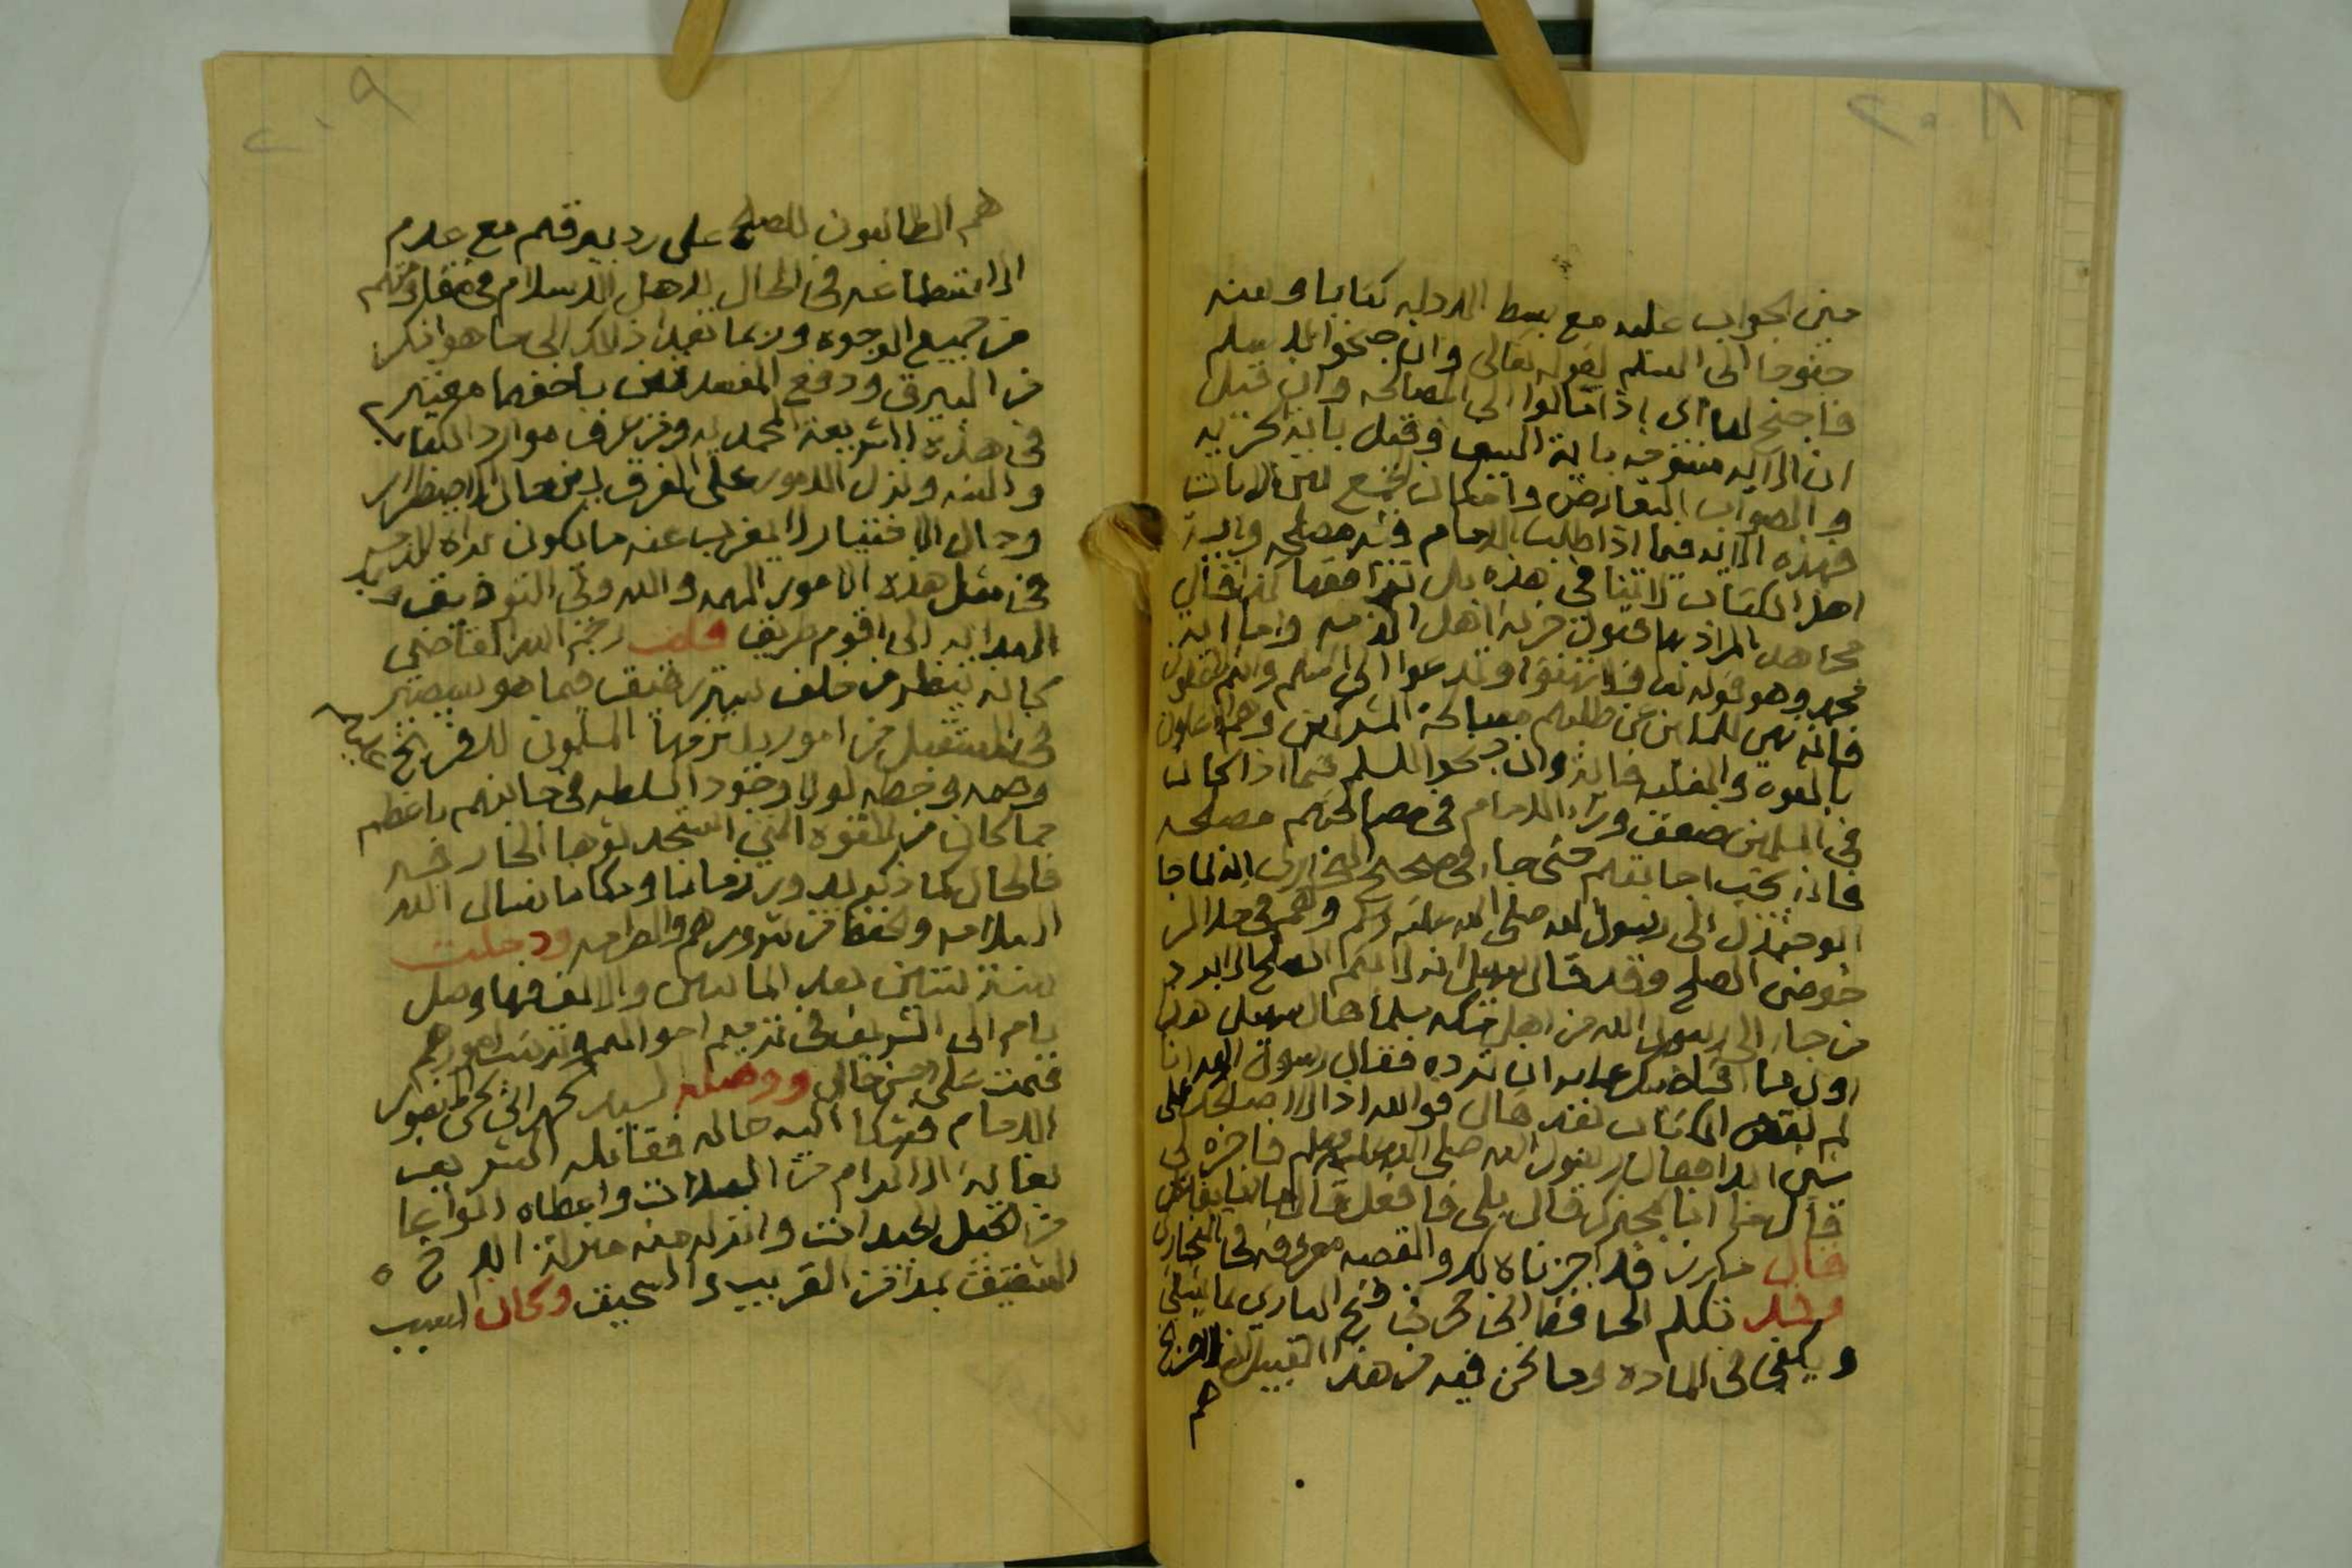 ٢٠٨
مبنى الجواب عليه مع بسط الادله كتابا وسنه
جنوحا الى السلم لقوله تعالى وان جنحوا للسلم
فاجنح لها اى اذا مالوا الى المصالحه وان قيل
ان الايه منسوخه باية السيف وقيل باية الجزيه
والصواب التعارض وامكان الجمع بين الايات
فهذه الايه فيما اذا طلب الامام فيه مصلحه واية
اهل الكتاب لا تنافى هذه بل توافقها لذا قال
مجاهد المراد بها قبول جزية اهل الذمه واما اية
محمد وهو قوله تعا فلا تهنوا وتدعوا الى السلم وانتم الاعلون
فانه نهى للمسلمين عن طلبهم مصالحة المشركين وهم الاعلون
بالقوه والغلبه فاية وان جنحوا للسلم فيما اذا كان
فى المسلمين ضعف وراء الامام فى مصالحتهم مصلحه
فاذن تجب اجابتهم حتى جاء فى صحيح البخارى انه لما جا
ابو جندل الى رسول الله صلى الله عليه وسلم وهم فى حال
خوض الصلح وقد قال سهيل انه لا يتم الصلح الا برد
من جاء الى رسول الله من اهل مكه مسلما قال سهيل هذا
اول ما اقاضيك عليه ان ترده فقال رسول الله انا
لم نقض الكتاب بعد قال فو الله اذا لا اصالحك على
شى ابدا فقال رسول الله صلى الله عليه وسلم فاجزه لى
قال ما انا بمجيزه لك قال بلى فافعل قال ما انا بفاعل
قال مكرز قد اجزناه لك والقصه معروفه فى البخارى
وقد تكلم الحافظ ابن حجر فى فتح البارى بما يشفى
ويكفى فى الماده وما نحن فيه من هذا القبيل اذ الفرنج
هم
٢٠٩
هم الطالبون للصلح على رد بيرقهم مع عدم
الاستطاعه فى الحال لاهل الاسلام فى مقاومتهم
من جميع الوجوه وربما تعدا ذلك الى ما هو انكر
من البيرق ودفع المفسدتين باخفهما معتبر
فى هذه الشريعة المحمديه ومن عرف موارد الكتاب
والسنه ونزل الامور على الفرق بين حال الاضطرار
وحال الاختيار لا يغرب عنه ما يكون يراه
فى مثل هذه الامور المهمه والله ولى التوفيق و
الهدايه الى اقوم طريق قلت رحم الله القاضى
كانه ينظر من خلف ستر رقيق فيما هو سيصير
فى المستقبل من امور يلتزمها المسلمون للافرنج
وصمه وخطه لولا وجود السلطه فى جانبهم باعظم
مما كان من القوه التى استجدتوها الخارجيه
فالحال كما ذكر لاهل زماننا ومكاننا نسال الله
السلامه والحفظ من شرورهم والطامه ودخلت
سنة ثنتين بعد المائتين والالف فيها وصل
يام الى الشريف فى تتميم احوالهم وترتيب امورهم
فتمت على احسن حال ووصل السيد
الامام فشكا اليه حاله فقابله الشريف
بغاية الاكرام من الصلات واعطاه انواعا
من الخيل الجيدات وانزله منه منزلة الاخ
الشقيق بل اقرب القريب والسحيق وكان السبب